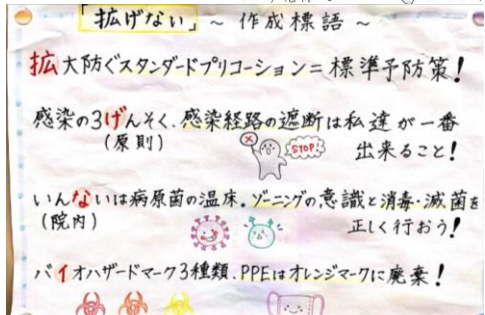 「拡げない」 ~ 作成標語 ~
拡大防ぐスタンダードプリコーション=標準予防策!
感染の3げんそく、感染経路の遮断は私達が一番
(原則)
STOP!
出来ること!
いんないは病原菌の温床。ゾーニングの意識と消毒・滅菌を
(院内)
正しく行おう!
バイオハザードマーク3種類、PPEはオレンジマークに廃棄!